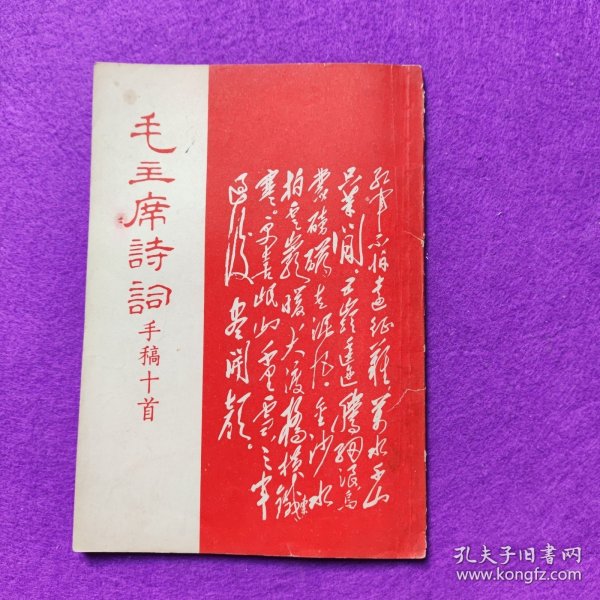 毛主席詩詞
手稿十首
紅軍不怕遠征難萬水千山
只等閒。五嶺逶迤騰細浪烏
蒙磅礴走泥丸。金沙水
拍雲崖暖大渡橋橫鐵索
寒。更喜岷山千里雪三軍
過後盡開顏。
孔夫子旧书网
www.kongfz.com